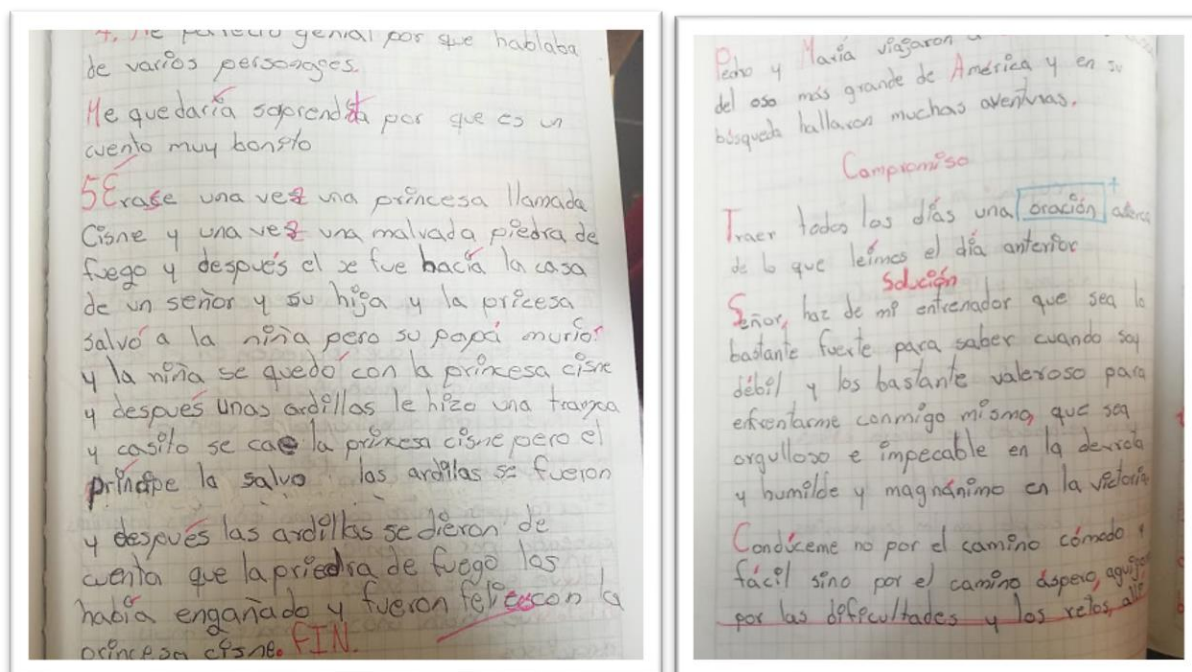 4. Me pareció genial por que hablaba
de varios personages.
Me quedaría soprendida por que es un
cuento muy bonito
5 Erase una vez una princesa llamada
Cisne y una vez una malvada piedra de
fuego y después el se fue hacía la casa
de un señor y su hija y la pricesa
salvó a la niña pero su papá murió
y la niña se quedó con la princesa cisne
y después unas ardillas le hizo una trampa
y casito se cae la princesa cisne pero el
príncipe la salvo las ardillas se fueron
y después las ardillas se dieron de
cuenta que la priedra de fuego las
había engañado y fueron felices con la
princesa cisne. FIN.
Pedro y María viajaron
del oso más grande de América y en su
búsqueda hallaron muchas aventuras.
Compromiso
Traer todos los días una oración acerca
de lo que leímos el día anterior
Solución
Señor, haz de mi entrenador que sea lo
bastante fuerte para saber cuando soy
débil y los bastante valeroso para
enfrentarme conmigo mismo, que sea
orgulloso e impecable en la derrota
y humilde y magnánimo en la victoria
Condúceme no por el camino cómodo y
fácil sino por el camino áspero,
por las dificultades y los retos,